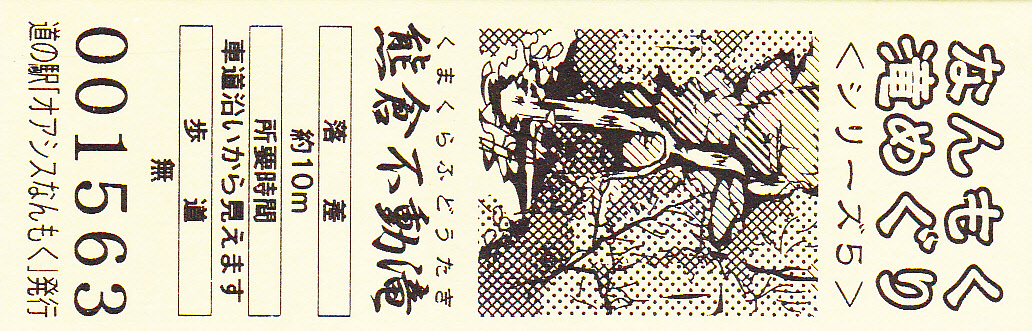 なんもく
滝めぐり
<シリーズ5>
くまくらふどうたき
熊倉不動滝
落差
約10m
所要時間
車道沿いから見えます
歩道
無
001563
道の駅「オアシスなんもく」発行